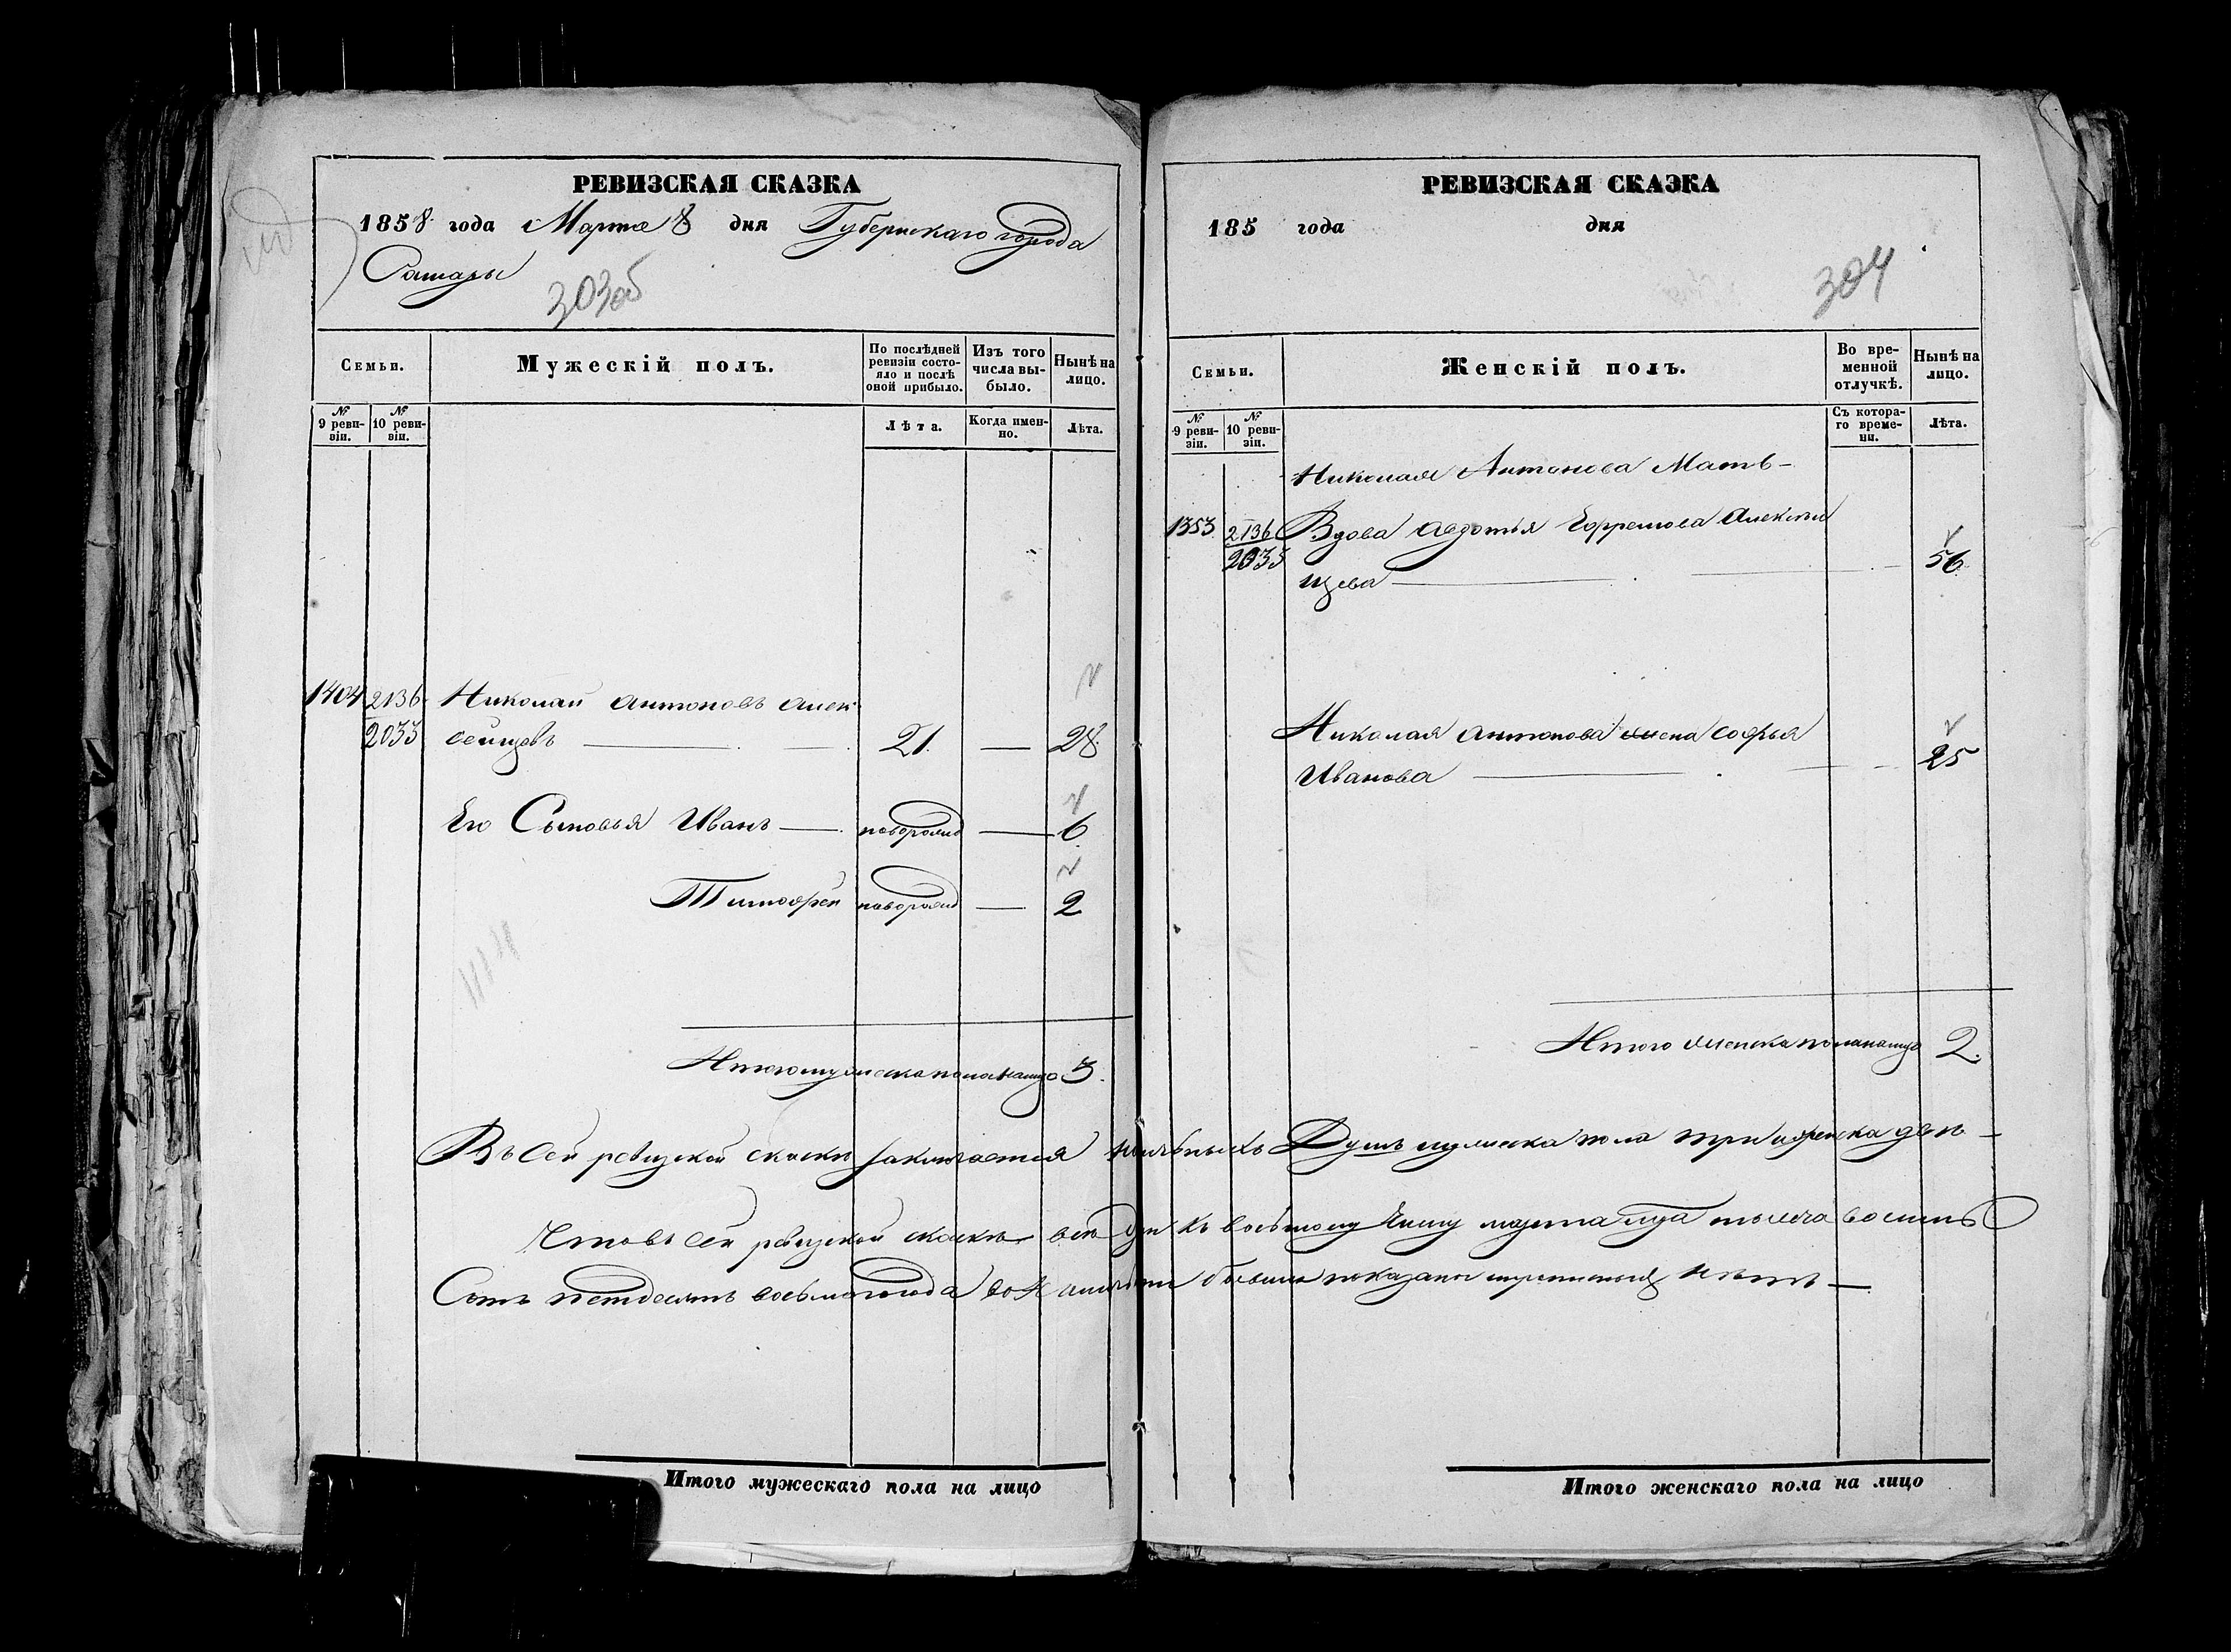 РЕВИЗСКАЯ СКАЗКА
1858 года Марта 8 дня Губернскаго города
Самары
303об
Семьи.
Мужескій полъ.
По послѣдней ревизіи состояло и послѣ оной прибыло.
Изъ того числа выбыло.
Нынѣ на лицо.
№ 9 ревизіи.
№ 10 ревизіи.
Лѣта.
Когда именно.
Лѣта.
1404 2136 Николай Антоновъ Алек
2033 сейцовъ 21. — 28.
Его Сыновья Иванъ — новорожд — 6.
Тимофей новорожд — 2
Итого мужеска пола налицо 3.
РЕВИЗСКАЯ СКАЗКА
185 года дня
304
Семьи.
Женскій полъ.
Во временной отлучкѣ.
Нынѣ на лицо.
№ 9 ревизіи.
№ 10 ревизіи.
Съ котораго времени.
Лѣта.
Николая Антонова Мать-
1353 2136 Вдова Авдотья Ефремова Алексей
2033 цева 56
Николая Антонова жена Софья
Иванова 25
Итого женска пола налицо 2.
Въ сей ревизской сказки заключается наличныхъ Душъ мужеска пола три и женска две —
Что въ сей ревизской сказке все Души къ восьмому числу марта тысеча восемь
Сотъ петдесятъ восьмого года в наличности бывши показаны и прописных нетъ —
Итого мужескаго пола на лицо
Итого женскаго пола на лицо